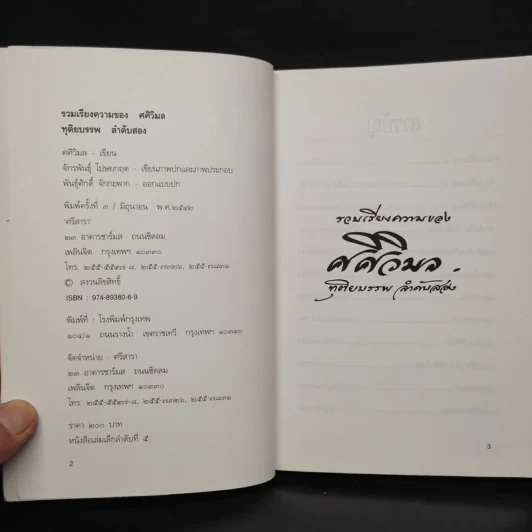 รวมเรียงความของ ศศิวิมล
ทุติยบรรพ ลำดับสอง
ศศิวิมล - เขียน
จักรพันธุ์ โปษยกฤต - เขียนภาพปกและภาพประกอบ
พันธุ์ศักดิ์ จักกะพาก - ออกแบบปก
พิมพ์ครั้งที่ ๓ / มิถุนายน พ.ศ.๒๕๔๒
'ศรีสารา'
๒๓ อาคารชาร์มส ถนนชิดลม
เพลินจิต กรุงเทพฯ ๑๐๓๓๐
โทร. ๒๕๕-๕๕๙๗-๘, ๒๕๕-๗๓๒๖, ๒๕๕-๗๘๓๑
© สงวนลิขสิทธิ์
ISBN : 974-89380-6-9
พิมพ์ที่ : โรงพิมพ์กรุงเทพ
๑๐๔/๑ ถนนรางน้ำ เขตราชเทวี กรุงเทพฯ ๑๐๓๑๐
จัดจำหน่าย : ศรีสารา
๒๓ อาคารชาร์มส ถนนชิดลม
เพลินจิต กรุงเทพฯ ๑๐๓๓๐
โทร. ๒๕๕-๕๕๙๗-๘, ๒๕๕-๗๓๒๖, ๒๕๕-๗๘๓๑
ราคา ๒๐๐ บาท
หนังสือเล่มเล็กลำดับที่ ๕
2
สารบัญ
รวมเรียงความของ
ศศิวิมล
ทุติยบรรพ ลำดับสอง
3